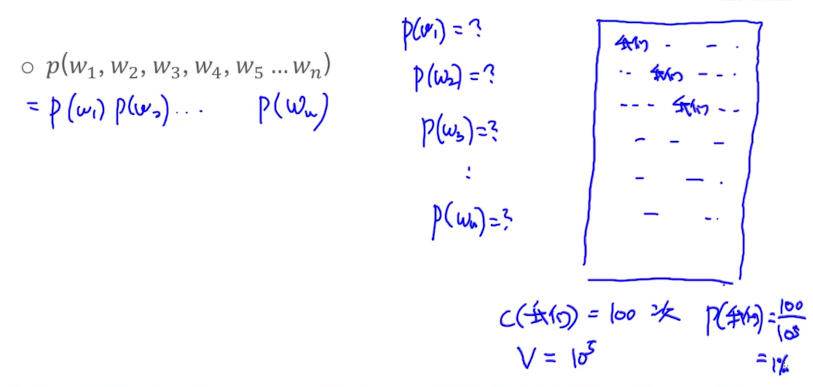 p(w₁, w₂, w₃, w₄, w₅ ... wₙ)
= p(w₁) p(w₂) ... p(wₙ)
p(w₁) = ?
p(w₂) = ?
p(w₃) = ?
:
p(wₙ) = ?
我们 - - .
.. 我们 - - .
- - - 我们 - -
- - -
- - .
- - .
C(我们) = 100 次 P(我们) = 100/10⁵
V = 10⁵ = 1‰